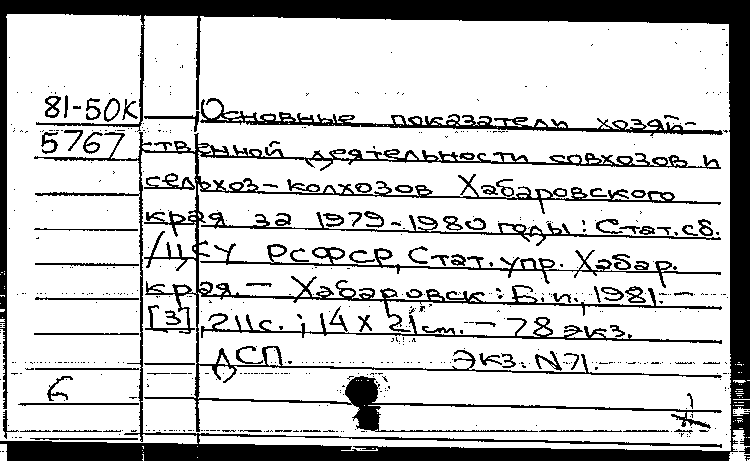 81-50К Основные показатели хозяй-
5767 ственной деятельности совхозов и
сельхоз-колхозов Хабаровского
края за 1979-1980 годы : Стат.сб.
/ЦСУ РСФСР, Стат. упр. Хабар.
края. — Хабаровск : Б.и., 1981. —
[3], 211с. ; 14 X 21 см. — 78 экз.
ДСП. Экз. N71.